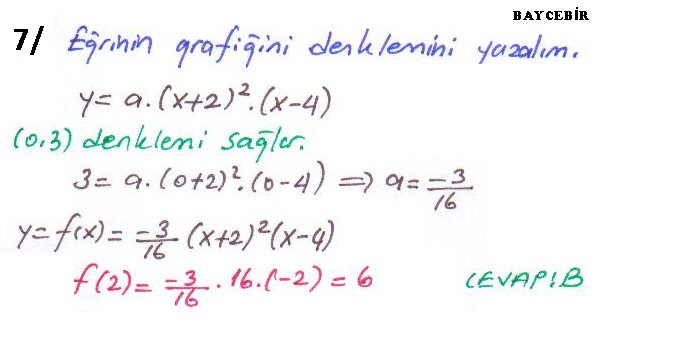 BAYCEBİR
7/ Eğrinin grafiğini denklemini yazalım.
y= a.(x+2)².(x-4)
(0,3) denklemi sağlar.
3= a.(0+2)².(0-4) ⇒ a= -3/16
y= f(x)= -3/16 (x+2)²(x-4)
f(2)= -3/16 . 16.(-2) = 6 CEVAP:B